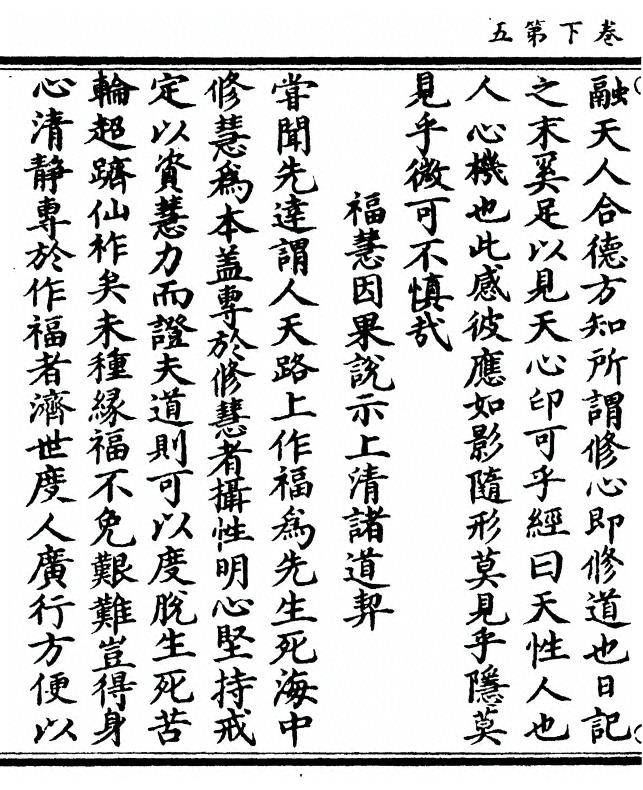 卷下第五
融天人合德方知所謂修心即修道也日記
之末奚足以見天心印可乎經曰天性人也
人心機也此感彼應如影隨形莫見乎隱莫
見乎微可不慎哉
福慧因果說示上清諸道契
甞聞先達謂人天路上作福爲先生死海中
修慧爲本盖專於修慧者攝性明心堅持戒
定以資慧力而證夫道則可以度脫生死苦
輪超躋仙祚矣未種緣福不免艱難豈得身
心清靜專於作福者濟世度人廣行方便以